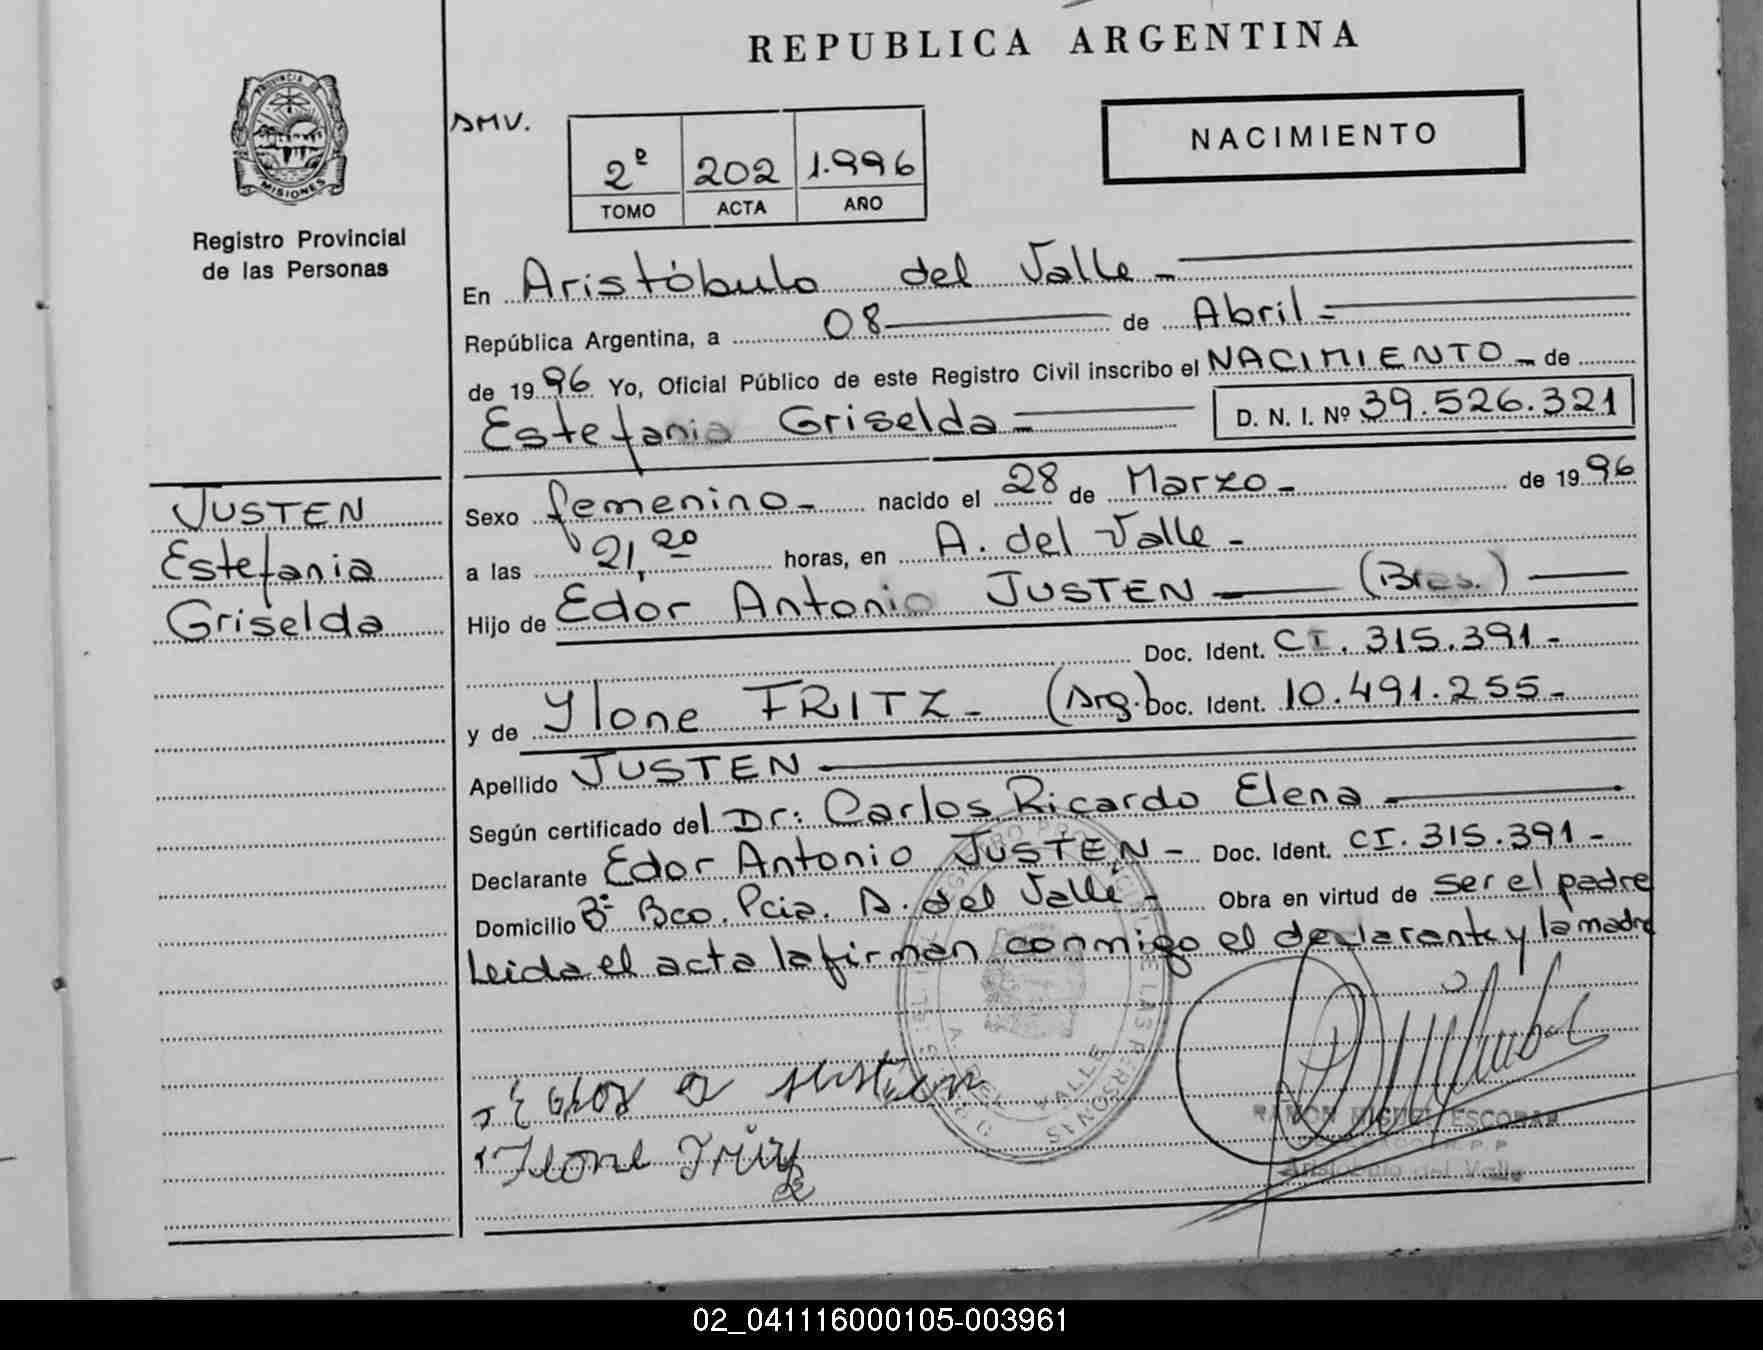 REPUBLICA ARGENTINA
PROVINCIA DE
MISIONES
Registro Provincial
de las Personas
AMV.
2º 202 1.996
TOMO ACTA AÑO
NACIMIENTO
En Aristóbulo del Valle -
República Argentina, a 08 de Abril -
de 1996 Yo, Oficial Público de este Registro Civil inscribo el NACIMIENTO - de
Estefania Griselda - D. N. I. Nº 39.526.321
JUSTEN
Estefania
Griselda
Sexo femenino - nacido el 28 de Marzo - de 1996
a las 21,20 horas, en A. del Valle -
Hijo de Edor Antonio JUSTEN (Bras.)
Doc. Ident. CI. 315.391 -
y de Ylone FRITZ - (Arg.) Doc. Ident. 10.491.255 -
Apellido JUSTEN
Según certificado del Dr: Carlos Ricardo Elena
Declarante Edor Antonio JUSTEN - Doc. Ident. CI. 315.391 -
Domicilio Bº Bco. Pcia. A. del Valle - Obra en virtud de ser el padre
Leida el acta la firman conmigo el declarante y la madre
Edor a Justen
Ilone Fritz
RAMON MIGUEL ESCOBAR
Aristobulo del Valle
DE LAS PERSONAS
A. DEL VALLE
02_041116000105-003961